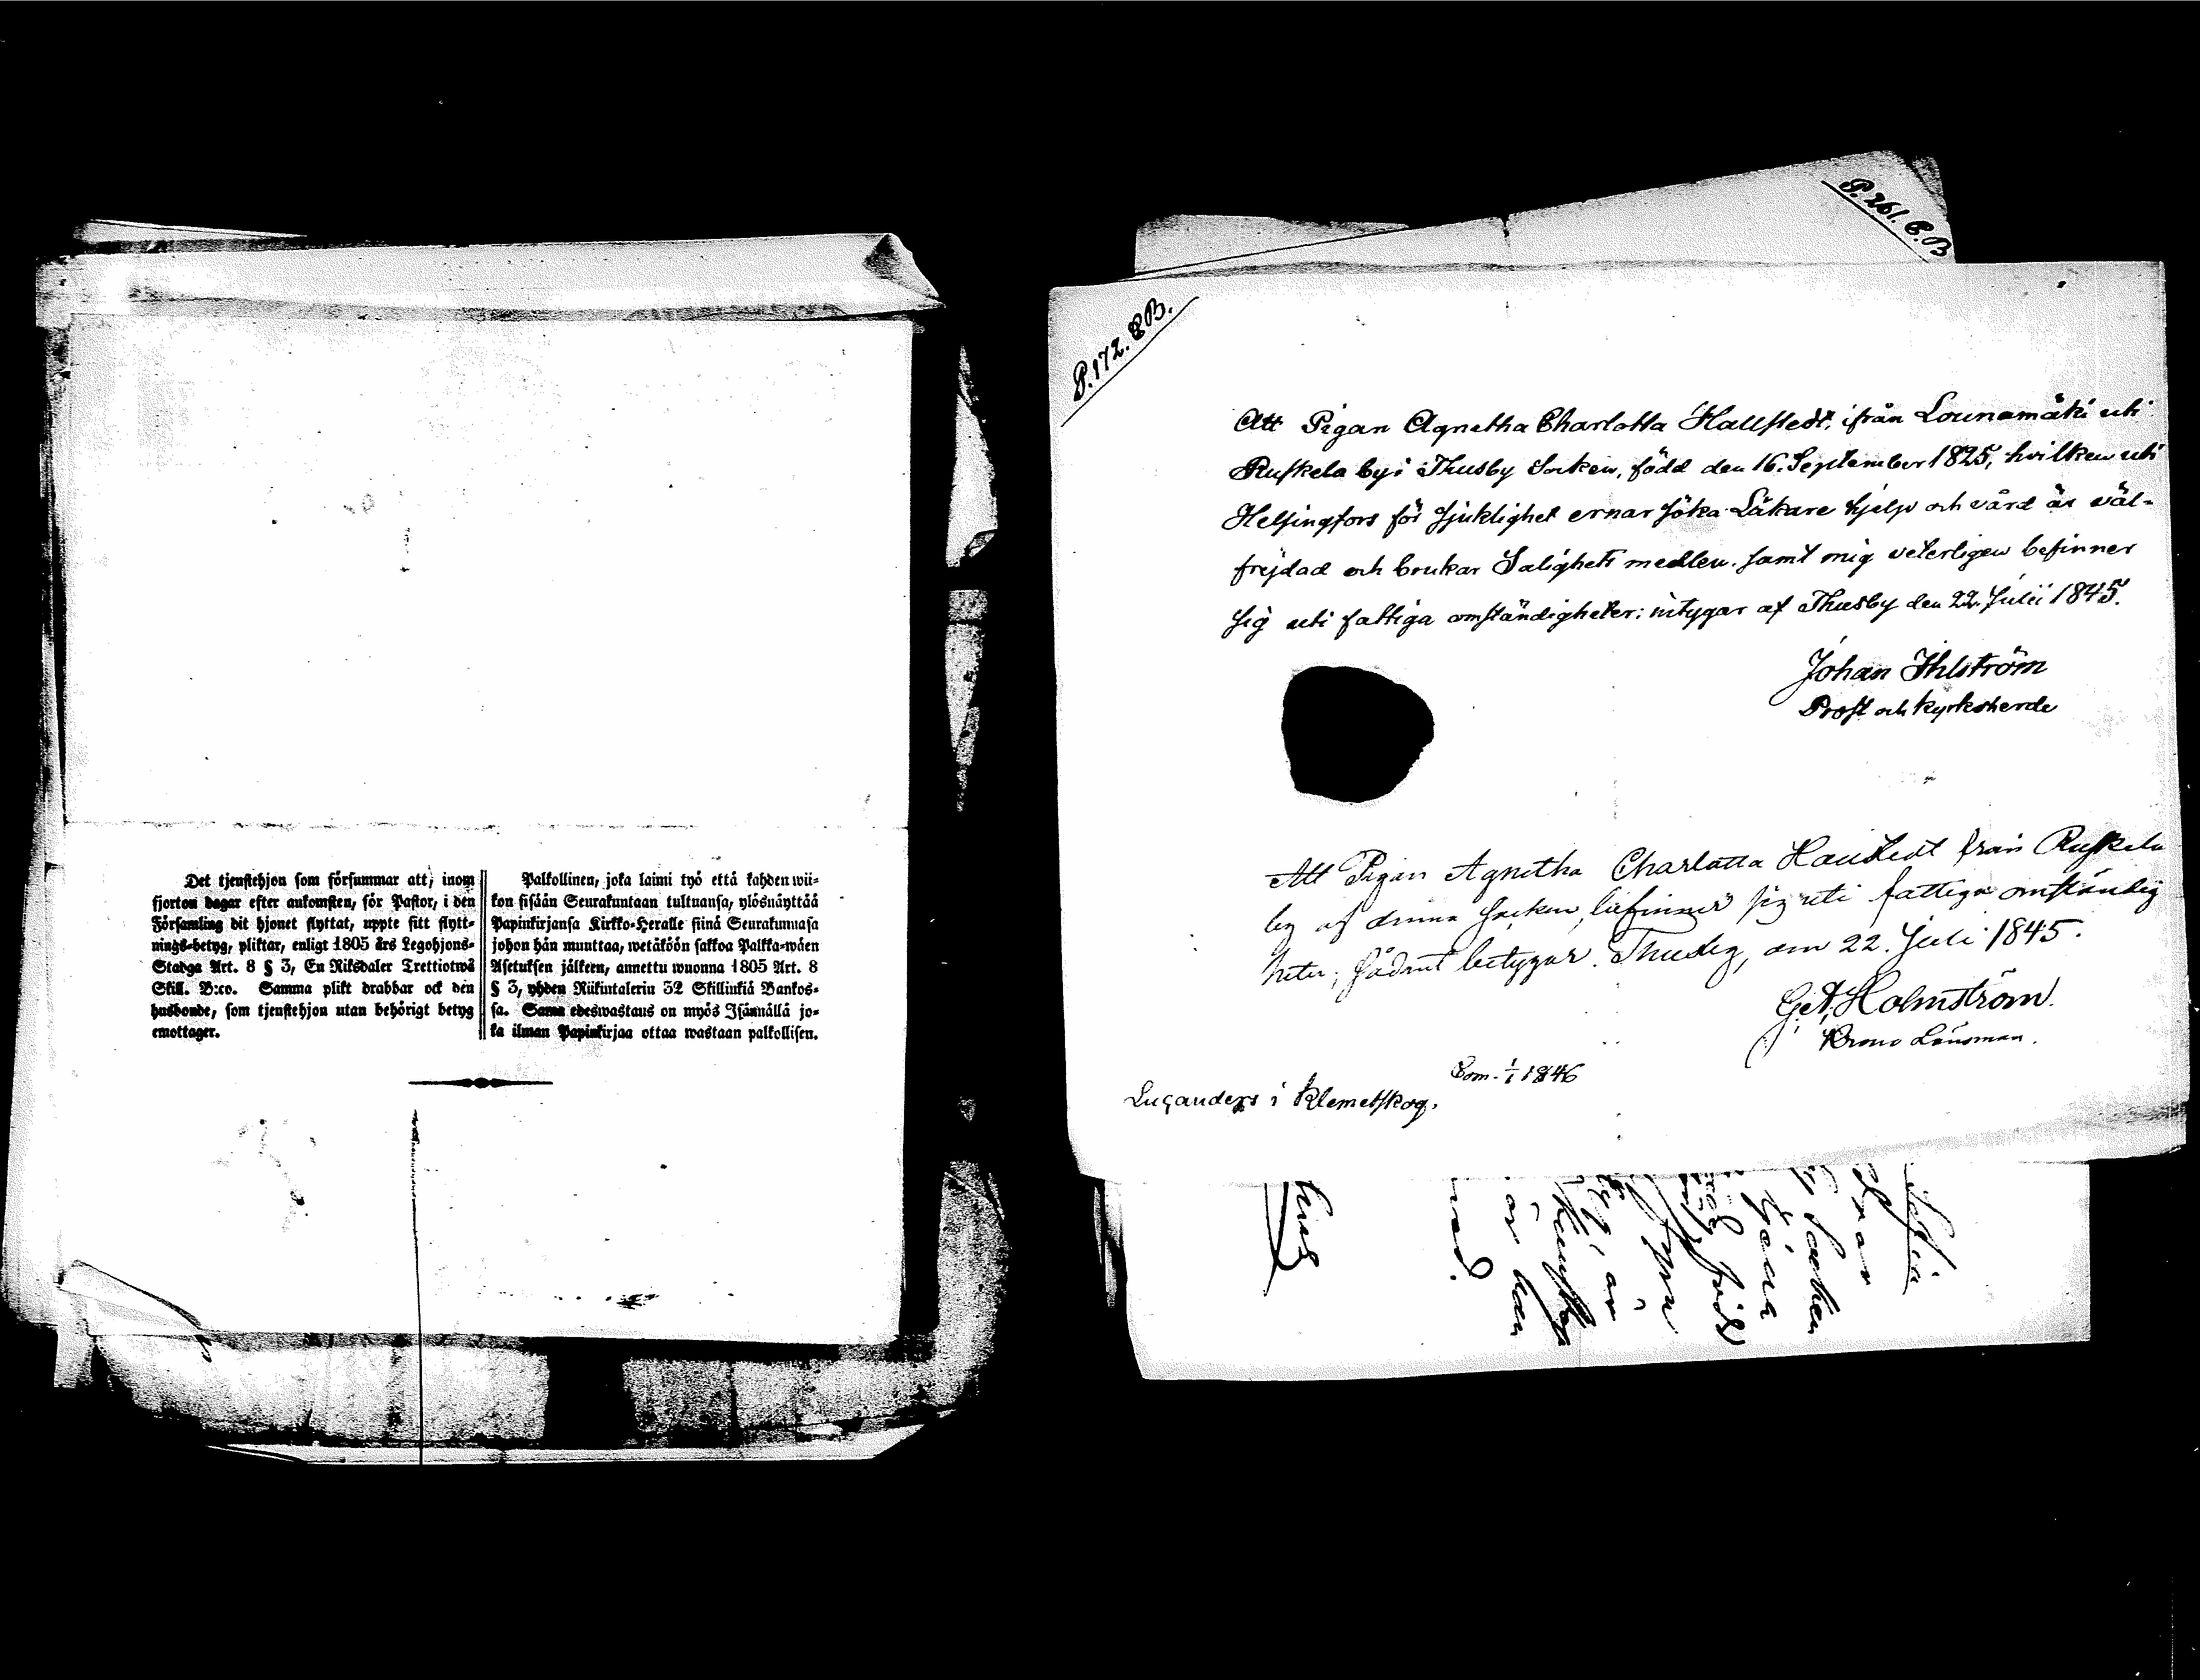 Det tjenstehjon som försummar att, inom
fjorton dagar efter ankomsten, för Pastor, i den
Församling dit hjonet flyttat, uppte sitt flytt-
nings-betyg, pliktar, enligt 1805 års Legohjons-
Stadga Art. 8 § 3, En Riksdaler Trettiotwå
Skill. B:co. Samma plikt drabbar ock den
husbonde, som tjenstehjon utan behörigt betyg
emottager.
Palkollinen, joka laimi työ että kahden wii-
kon sisään Seurakuntaan tultuansa, ylösnäyttää
Papinkirjansa Kirkko-Heralle siinä Seurakunnasa
johon hän muuttaa, wetäköön sakkoa Palkka-wäen
Asetuksen jälkeen, annettu wuonna 1805 Art. 8
§ 3, yhden Riikintalerin 32 Skillinkiä Bankos-
sa. Sama edeswastaus on myös Isännällä jo-
ka ilman Papinkirjaa ottaa wastaan palkollisen.
P. 261. C.B
P. 172. C.B.
Att Pigan Agnetha Charlotta Hallstedt, ifrån Lounamäki uti
Ruskela by i Thusby Socken, född den 16. September 1825, hvilken uti
Helsingfors för sjuklighet ernar söka Läkare hjelp och vård är väl-
frejdad och brukar Salighets medlen. samt mig veterligen befinner
sig uti fattiga omständigheter; intygar af Thusby den 22. Julii 1845.
Johan Ihlström
Prost och Kyrkoherde
Att Pigan Agnetha Charlotta Hallstedt från Ruskela
by af denna socken, befinner sig uti fattiga omständig
heter; sådant betygar. Thusby, om 22. Juli 1845.
Holmström.
Krono Länsman.
Com. 1/1 1846
Luganders i Klemetskog.